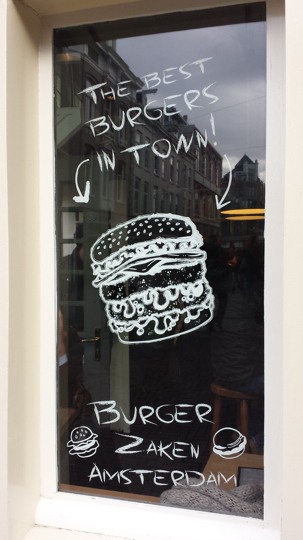 THE BEST
BURGERS
IN TOWN!
BURGER
ZAKEN
AMSTERDAM